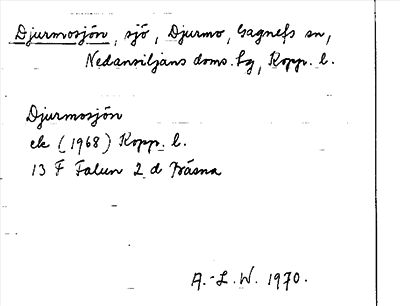 Djurmosjön, sjö, Djurmo, Gagnefs sn,
Nedansiljans doms. hg, Kopp. l.
Djurmosjön
ek (1968) Kopp. l.
13 F Falun 2 d Bäsna
A.-L.W. 1970.